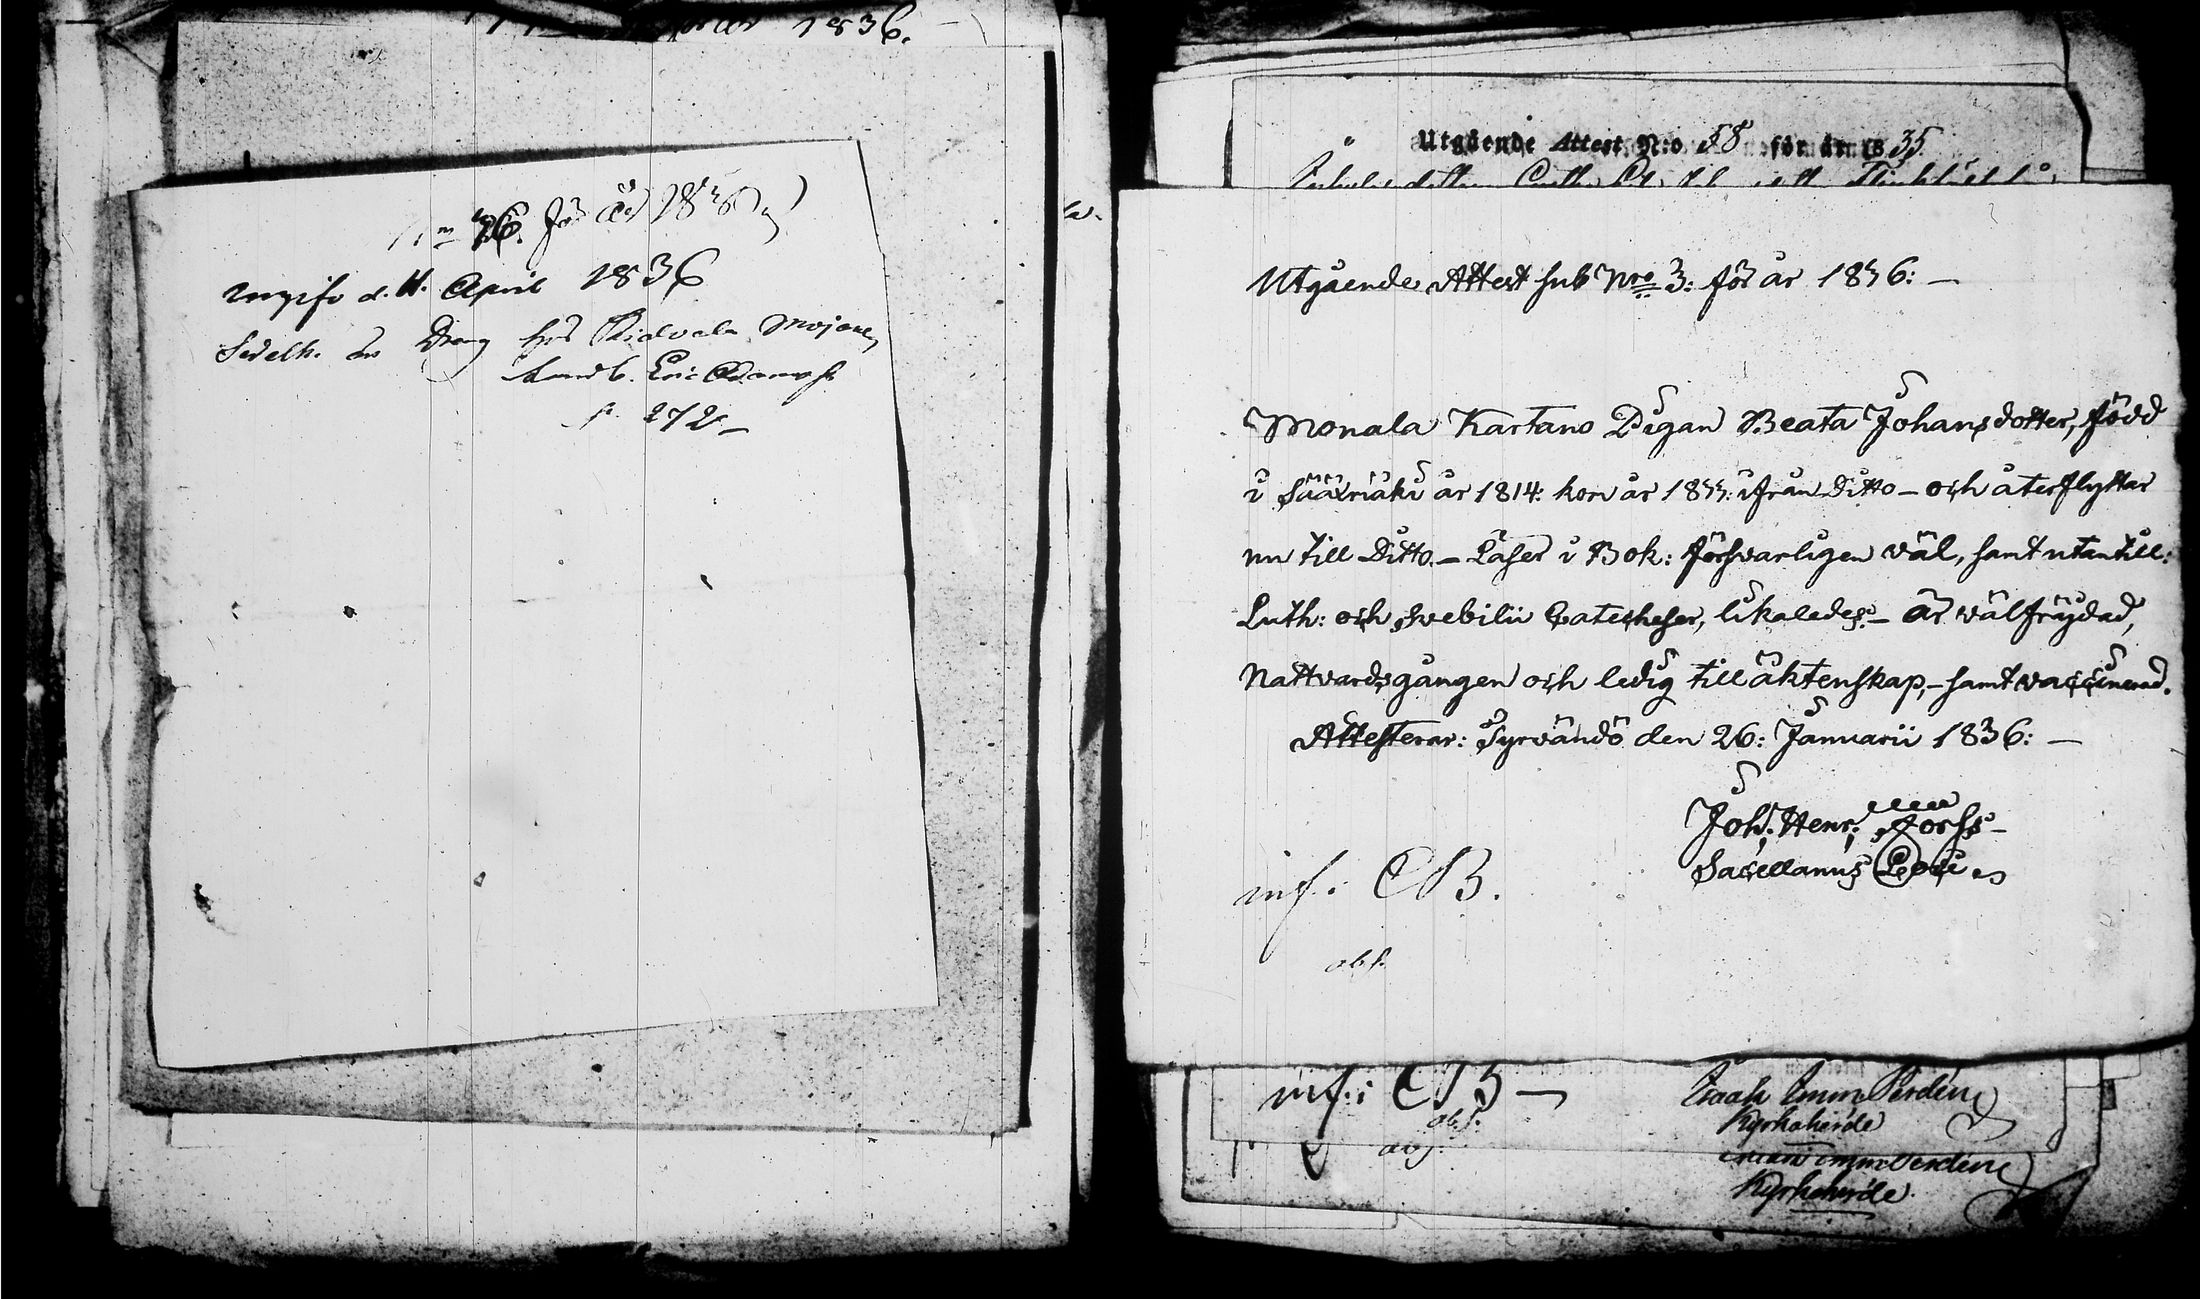 1836.
No 76. för år 1836
Ingifv d. 11. April 1836
Sedelh. är Dräng hos
Landb. Eric Adamss.
p. 272
Utgående Attest N:o 58 för år 1835
Utgående Attest sub Nro 3: för år 1836: —
Monala Kartano Pigan Beata Johansdotter, född
i Sääxmäki år 1814: kom år 1833: ifrån Ditto — och återflyttar
nu till Ditto. — Läser i Bok: försvarligen väl, samt utantill:
Luth: och Svebilii Catecheser, likaledes — är välfrägdad,
Nattvardsgången och ledig till äktenskap, — samt vaccinerad.
Attesterar: Tyrvändö den 26: Januarii 1836: —
Joh. Henr: Forss —
Sacellanus Loci
inf: CB.
abs.
inf: CB —
abs.
abs.
Isaak Imm Verdin
Kyrkoherde
Isaak Imm Verdin
Kyrkoherde.